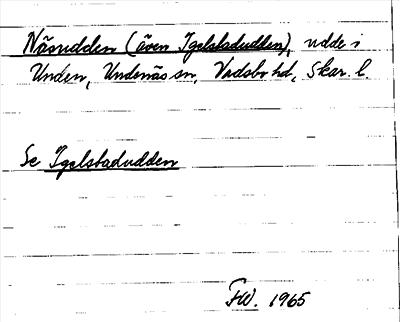 Näsudden (även Igelstadudden), udde i
Unden, Undenäs sn, Vadsbo hd, Skar. l.
Se Igelstadudden
FW. 1965